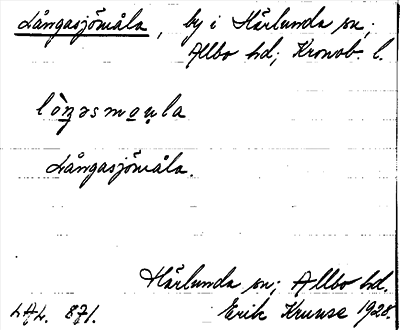 Långasjömåla, by i Härlunda sn;
Allbo hd; Kronob. l.
lòŋəsmou̯la
Långasjömåla.
Härlunda sn; Allbo hd.
LAL. 871. Erik Kruuse 1928.